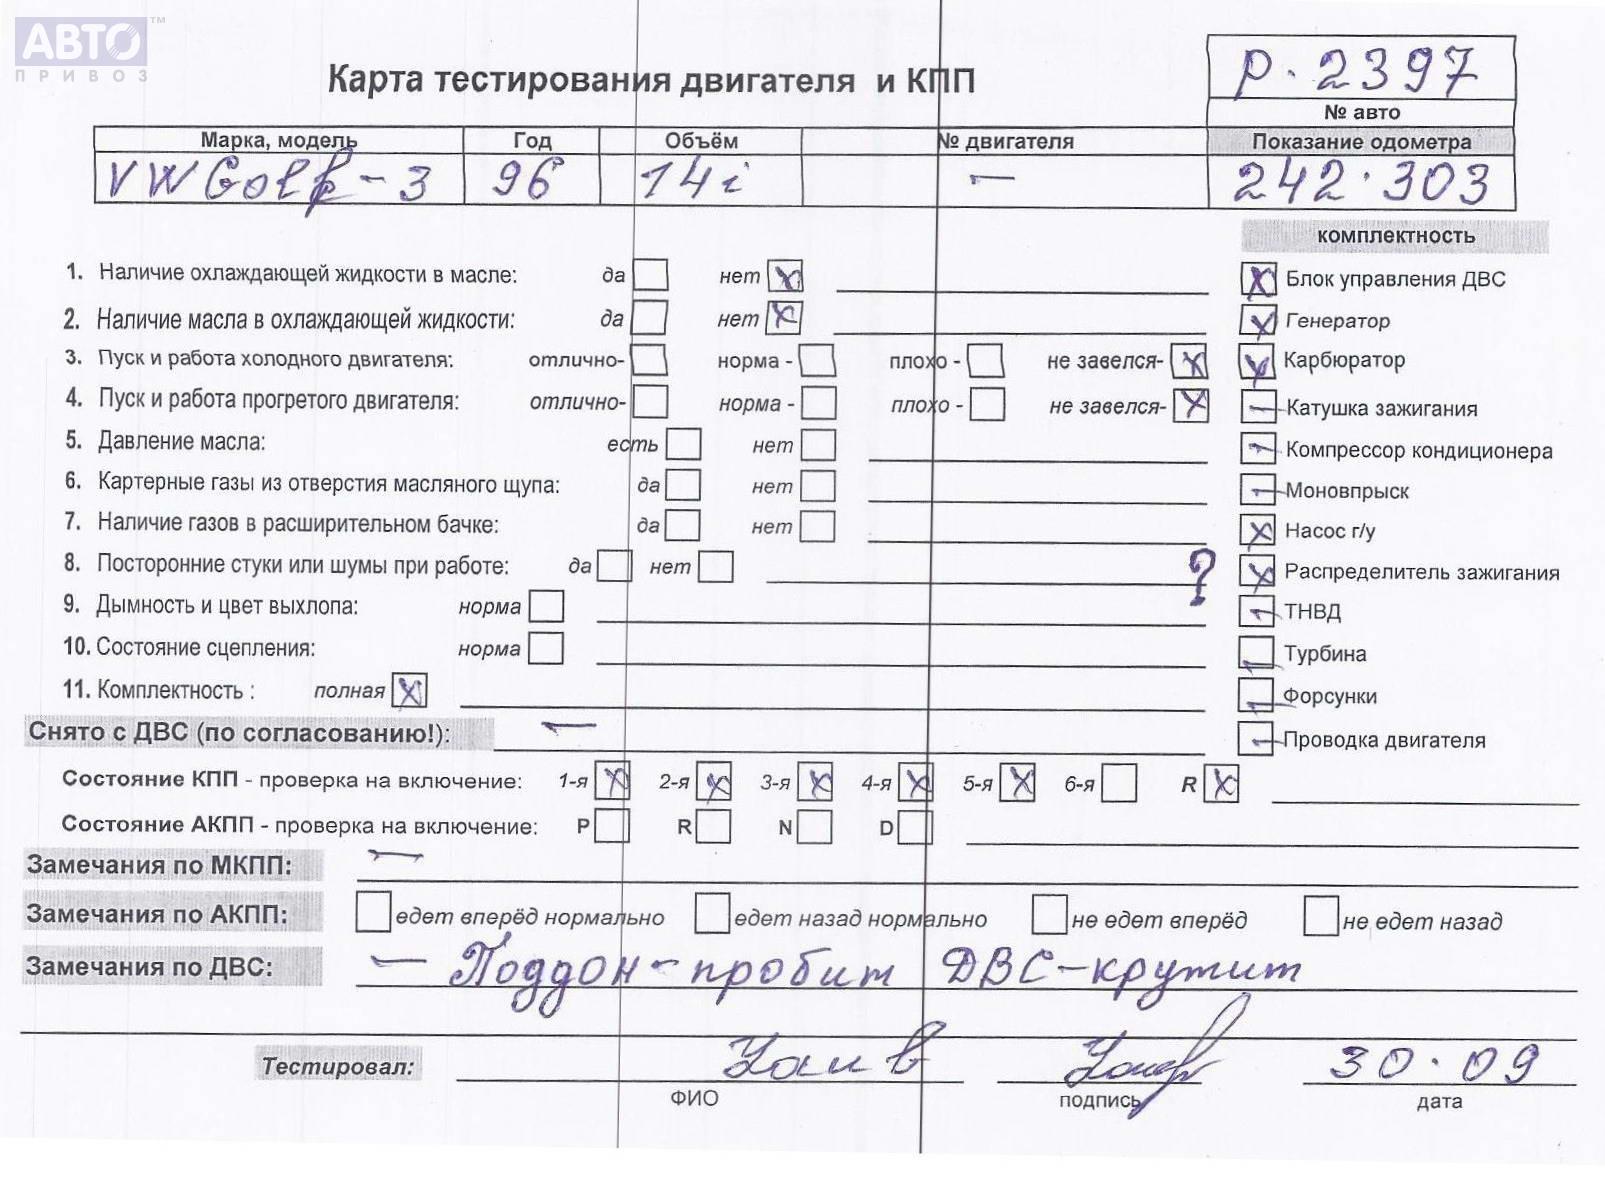 АВТО™
ПРИВОЗ
Карта тестирования двигателя и КПП
Р. 2397
№ авто
Марка, модель Год Объём № двигателя Показание одометра
VW Golf-3 96 14i — 242.303
комплектность
1. Наличие охлаждающей жидкости в масле: да нет X
X Блок управления ДВС
2. Наличие масла в охлаждающей жидкости: да нет X
X Генератор
3. Пуск и работа холодного двигателя: отлично- норма - плохо - не завелся- X
X Карбюратор
4. Пуск и работа прогретого двигателя: отлично- норма - плохо - не завелся- X
— Катушка зажигания
5. Давление масла: есть нет
— Компрессор кондиционера
6. Картерные газы из отверстия масляного щупа: да нет
— Моновпрыск
7. Наличие газов в расширительном бачке: да нет
X Насос г/у
8. Посторонние стуки или шумы при работе: да нет ?
X Распределитель зажигания
9. Дымность и цвет выхлопа: норма
— ТНВД
10. Состояние сцепления: норма
— Турбина
11. Комплектность : полная X
— Форсунки
Снято с ДВС (по согласованию!): —
— Проводка двигателя
Состояние КПП - проверка на включение: 1-я X 2-я X 3-я X 4-я X 5-я X 6-я R X
Состояние АКПП - проверка на включение: P R N D
Замечания по МКПП: —
Замечания по АКПП: едет вперёд нормально едет назад нормально не едет вперёд не едет назад
Замечания по ДВС: — Поддон - пробит ДВС - крутит
Тестировал: 30.09
ФИО подпись дата